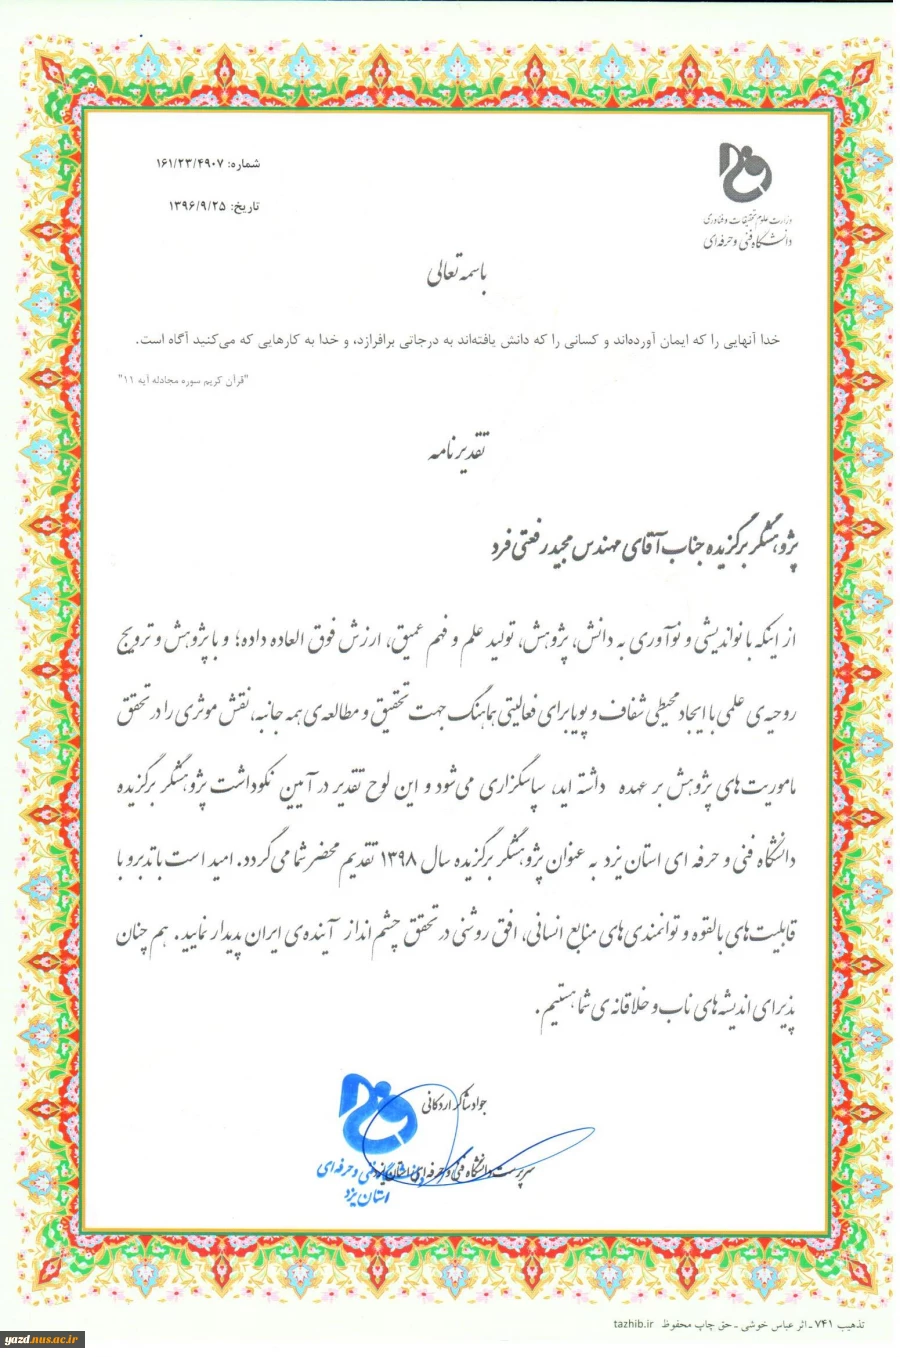 شماره: ۱۶۱/۲۳/۴۹۰۷
تاریخ: ۱۳۹۶/۹/۲۵
وزارت علوم تحقیقات و فناوری
دانشگاه فنی و حرفه‌ای
باسمه تعالی
خدا آنهایی را که ایمان آورده‌اند و کسانی را که دانش یافته‌اند به درجاتی برافرازد، و خدا به کارهایی که می‌کنید آگاه است.
"قرآن کریم سوره مجادله آیه ۱۱"
تقدیرنامه
پژوهشگر برگزیده جناب آقای مهندس مجید رفعتی فرد
از اینکه با نواندیشی و نوآوری به دانش، پژوهش، تولید علم و فهم عمیق، ارزش فوق العاده داده؛ و با پژوهش و ترویج
روحیه‌ی علمی با ایجاد محیطی شفاف و پویا برای فعالیتی هماهنگ جهت تحقیق و مطالعه‌ی همه جانبه، نقش موثری را در تحقق
ماموریت‌های پژوهش بر عهده داشته اید، سپاسگزاری می‌شود و این لوح تقدیر در آیین نکوداشت پژوهشگر برگزیده
دانشگاه فنی و حرفه ای استان یزد به عنوان پژوهشگر برگزیده سال ۱۳۹۸ تقدیم محضر شما می‌گردد. امید است با تدبر و با
قابلیت‌های بالقوه و توانمندی‌های منابع انسانی، افق روشنی در تحقق چشم انداز آینده‌ی ایران پدیدار نمایید. هم چنان
پذیرای اندیشه‌های ناب و خلاقانه‌ی شما هستیم.
جواد شاکر اردکانی
سرپرست دانشگاه فنی و حرفه ای استان یزد
دانشگاه فنی و حرفه‌ای
استان یزد
تذهیب ۷۴۱ ـ اثر عباس خوشی ـ حق چاپ محفوظ tazhib.ir
yazd.nus.ac.ir